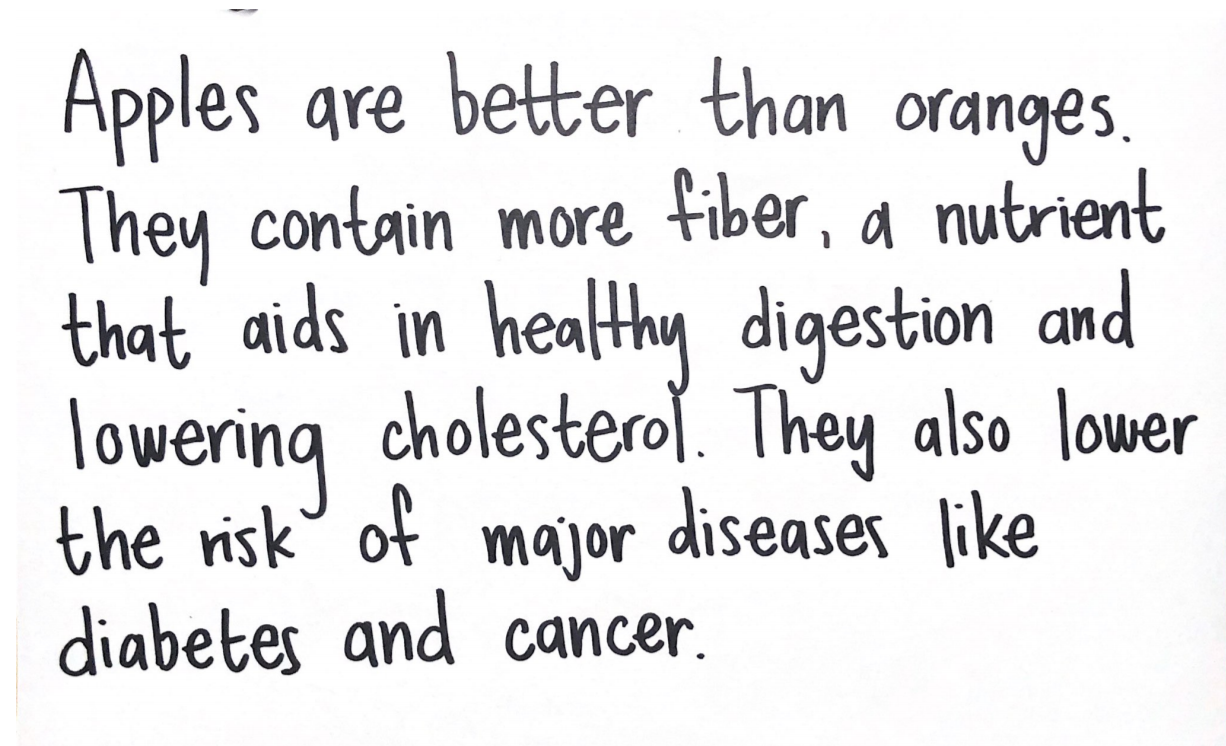 Apples are better than oranges.
They contain more fiber, a nutrient
that aids in healthy digestion and
lowering cholesterol. They also lower
the risk of major diseases like
diabetes and cancer.